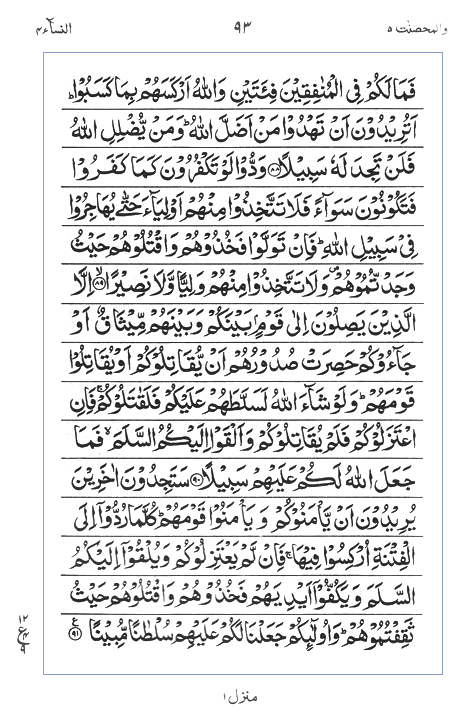 والمحصنت ۵ ۹۳ النساء ۴
فَمَا لَكُمْ فِى الْمُنٰفِقِيْنَ فِئَتَيْنِ وَاللّٰهُ اَرْكَسَهُمْ بِمَا كَسَبُوْا ؕ
اَتُرِيْدُوْنَ اَنْ تَهْدُوْا مَنْ اَضَلَّ اللّٰهُ ؕ وَمَنْ يُّضْلِلِ اللّٰهُ
فَلَنْ تَجِدَ لَهٗ سَبِيْلًا ﴿۸۸﴾ وَدُّوْا لَوْ تَكْفُرُوْنَ كَمَا كَفَرُوْا
فَتَكُوْنُوْنَ سَوَآءً فَلَا تَتَّخِذُوْا مِنْهُمْ اَوْلِيَآءَ حَتّٰى يُهَاجِرُوْا
فِىْ سَبِيْلِ اللّٰهِ ؕ فَاِنْ تَوَلَّوْا فَخُذُوْهُمْ وَاقْتُلُوْهُمْ حَيْثُ
وَجَدْتُّمُوْهُمْ ۪ وَلَا تَتَّخِذُوْا مِنْهُمْ وَلِيًّا وَّلَا نَصِيْرًا ﴿۸۹﴾ اِلَّا
الَّذِيْنَ يَصِلُوْنَ اِلٰى قَوْمٍۭ بَيْنَكُمْ وَبَيْنَهُمْ مِّيْثَاقٌ اَوْ
جَآءُوْكُمْ حَصِرَتْ صُدُوْرُهُمْ اَنْ يُّقَاتِلُوْكُمْ اَوْ يُقَاتِلُوْا
قَوْمَهُمْ ؕ وَلَوْ شَآءَ اللّٰهُ لَسَلَّطَهُمْ عَلَيْكُمْ فَلَقٰتَلُوْكُمْ ۚ فَاِنِ
اعْتَزَلُوْكُمْ فَلَمْ يُقَاتِلُوْكُمْ وَاَلْقَوْا اِلَيْكُمُ السَّلَمَ ۙ فَمَا
جَعَلَ اللّٰهُ لَكُمْ عَلَيْهِمْ سَبِيْلًا ﴿۹۰﴾ سَتَجِدُوْنَ اٰخَرِيْنَ
يُرِيْدُوْنَ اَنْ يَّاْمَنُوْكُمْ وَيَاْمَنُوْا قَوْمَهُمْ ؕ كُلَّمَا رُدُّوْۤا اِلَى
الْفِتْنَةِ اُرْكِسُوْا فِيْهَا ۚ فَاِنْ لَّمْ يَعْتَزِلُوْكُمْ وَيُلْقُوْۤا اِلَيْكُمُ
السَّلَمَ وَيَكُفُّوْۤا اَيْدِيَهُمْ فَخُذُوْهُمْ وَاقْتُلُوْهُمْ حَيْثُ
ثَقِفْتُمُوْهُمْ ؕ وَاُولٰٓئِكُمْ جَعَلْنَا لَكُمْ عَلَيْهِمْ سُلْطٰنًا مُّبِيْنًا ﴿۹۱﴾ ع
۱۲
ع ۴
۹
منزل ۱